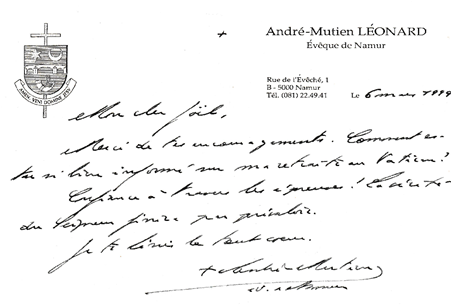 André-Mutien LÉONARD
Évêque de Namur
Rue de l'Évêché, 1
B - 5000 Namur
Tél. (081) 22.49.41
Le 6 mars 1999
Mon cher Joël,
Merci de tes encouragements. Comment es-
tu si bien informé sur ma retraite au Vatican?
Confiance à travers les épreuves! La vérité
du Seigneur finira par prévaloir.
Je te bénis de tout cœur.
+ André-Mutien,
év. de Namur